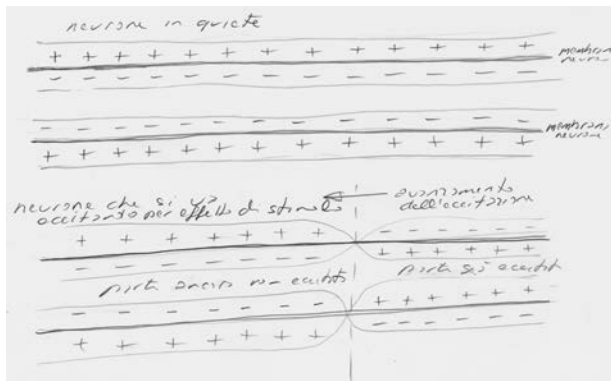 neurone in quiete
+ + + + + + + + + + + +
membrana neurone
- - - - - - - - - - - -
- - - - - - - - - - -
membrana neurone
+ + + + + + + + + + + +
neurone che si va
eccitando per effetto di stimolo
avanzamento
dell'eccitazione
+ + + + + + +
- - - - - -
- - - - - - -
+ + + + + +
parte ancora non eccitata
parte già eccitata
- - - - - - -
+ + + + + + +
+ + + + + + +
- - - - - - -